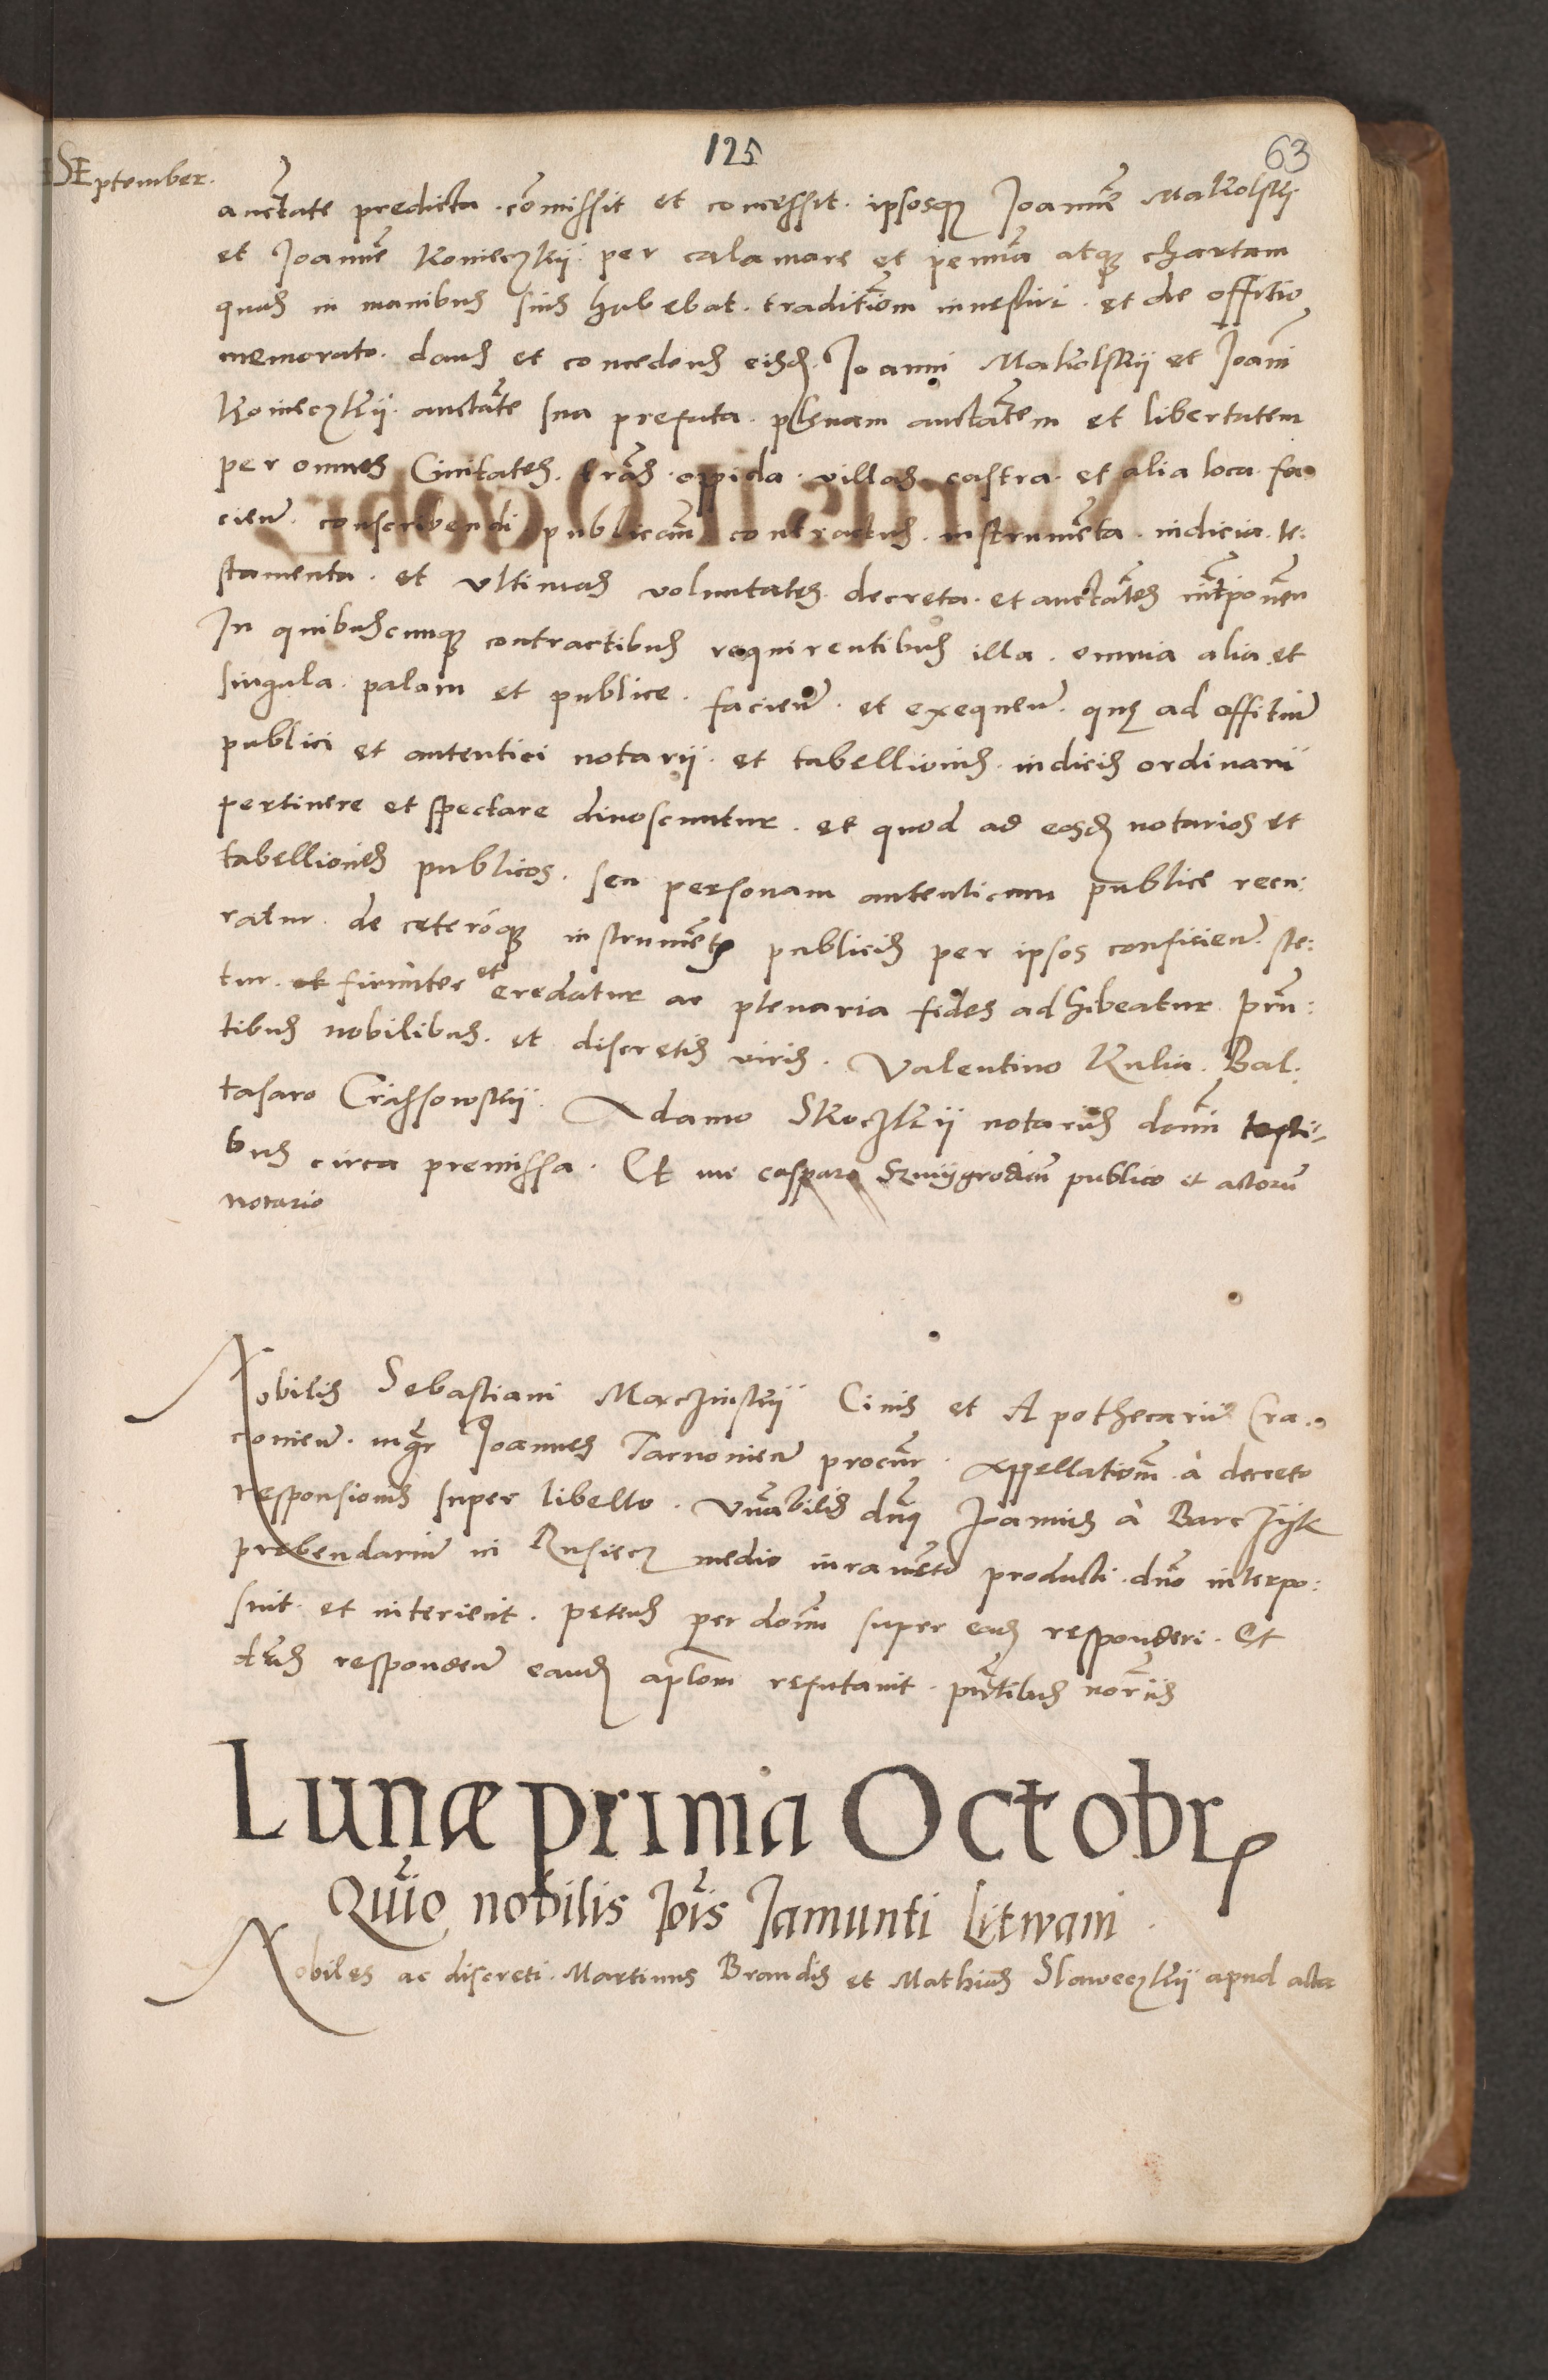 125
63
SEptember.
auctate predicta. comissit et concessit. ipsosq Joanne Makolskij
et Joanne Konieczkij. per calamare et penna atq chartam
quas in manibus suis habebat. traditiom investivit. et de offitio
memorato. dans et concedens eisd. Joanni Makolskij et Joani
Konieczkij. auctate sua prefata. plenam auctatem et libertatem
per omnes Civitates. tras. oppida. villas castra. et alia loca. fa
cien. conscribendi publicam contractus. instrumeta. indicia. te:
stamenta. et ultimas voluntates. decreta. et auctates intponen
In quibuscunq contractibus requirentibus illa. omnia alia et
singula. palam et publice. facien. et exequen. que ad offitiu
publici et autentici notarii. et tabellionis. iudicis ordinarii
pertinere et spectare dinoscuntur. et quod ad eosd notarios et
tabelliones publicos. seu personam autenticam publice recu:
ratur. de ceteróq instrumet publicis per ipsos conficien. ste:
tur. et firmiter et credatur ac plenaria fides adhibeatur. Prn:
tibus nobilibus. et discretis viris. Valentino Kulia. Bal.
tasaro Crassowskij. Adamo Skoczkij notariis domi testi-
bus circa premissa. Et me casparo Szmijgrodien publico et actoru
notario
Nobilis Sebastiani Marczinskij Civis et Apothecarii Cra
covien. mgr Joannes Tarnovien procur. Appellatiom à decreto
responsionis super libello. Vnabilis dni Joannis à Barczijk
prebendarii in Rusiecz medio iurameto producti. dno interpo:
suit et interiecit. petens per domi super ead responderi. Et
dns responden eand aplom refutavit. prntibus noriis
Lunæ prima Octobr
Quio nobilis Jois Jamunti Litwani
Nobiles ac discreti. Martinus Brandis et Mathias Slaweczkij apud acta